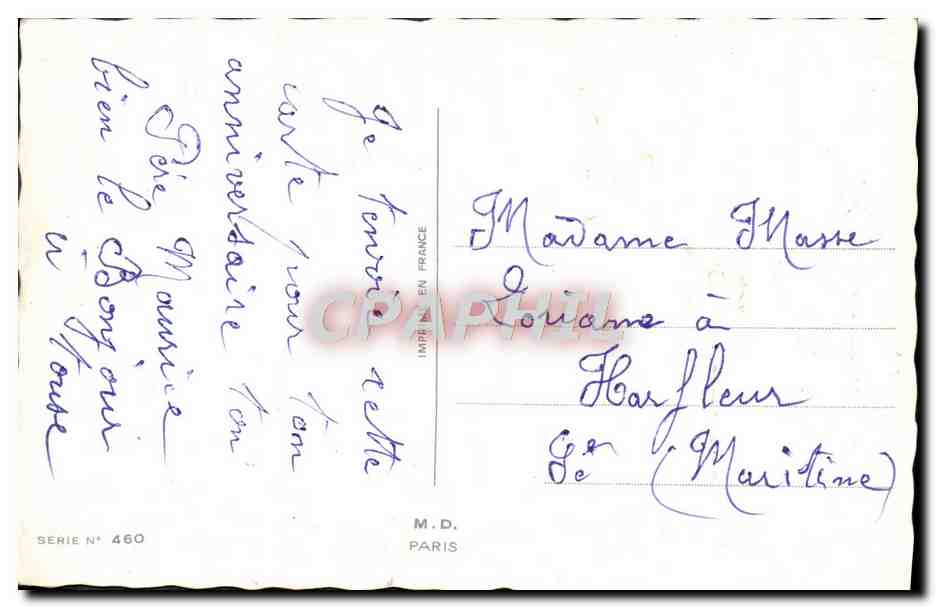 Je tenvoie cette
carte pour ton
anniversaire ton
Père Maurice
bien le Bonjour
à touse
Madame Masse
Loriane à
Harfleur
Se (Maritine)
IMPRIMÉ EN FRANCE
CPAPHIL
SERIE N° 460
M.D.
PARIS